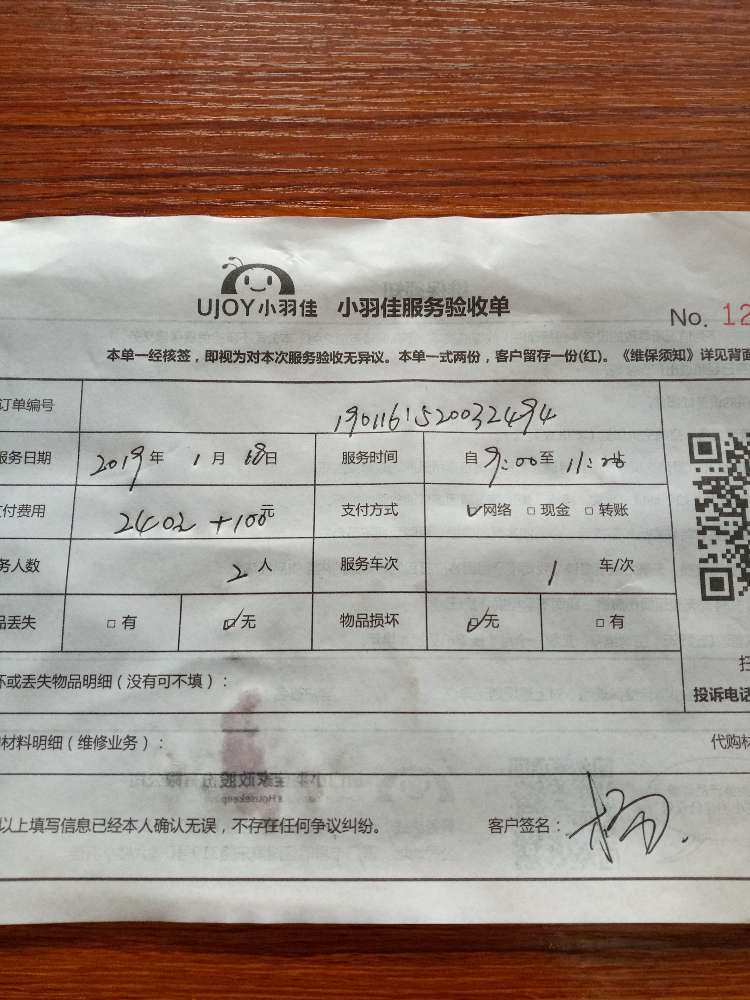 UJOY小羽佳 小羽佳服务验收单
No. 12
本单一经核签，即视为对本次服务验收无异议。本单一式两份，客户留存一份(红)。《维保须知》详见背面
订单编号 1901161520032494
服务日期 2019年 1月 18日 服务时间 自9:00至11:
付费用 2402+100元 支付方式 网络 现金 转账
务人数 2人 服务车次 1 车/次
品丢失 有 无 物品损坏 无 有
坏或丢失物品明细（没有可不填）：
扫
投诉电话
材料明细（维修业务）： 代购材
以上填写信息已经本人确认无误，不存在任何争议纠纷。 客户签名：杨